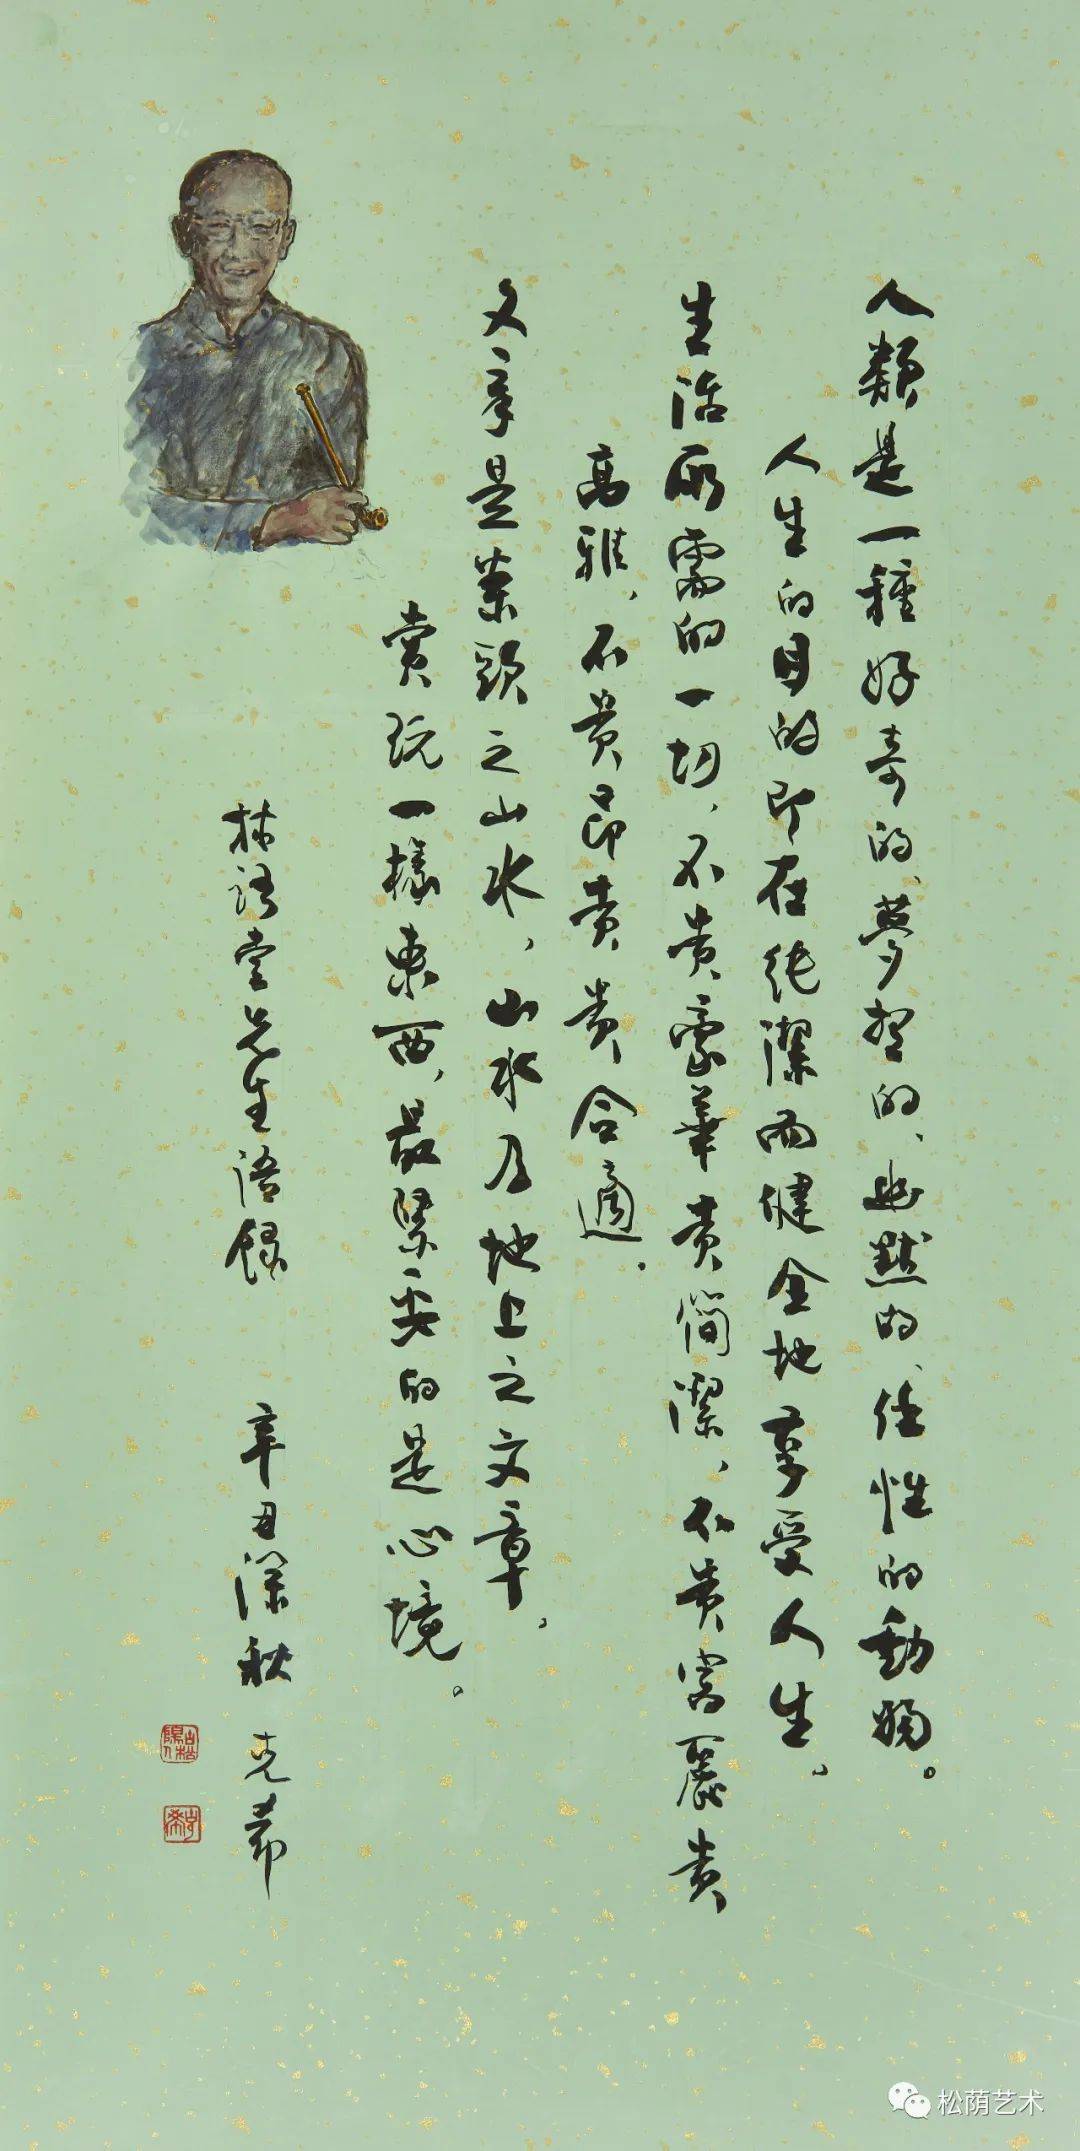 人類是一種好奇的、夢想的、幽默的、任性的動物。
人生的目的即在純潔而健全地享受人生。
生活所需的一切，不貴豪華貴簡潔，不貴富麗貴
高雅，不貴昂貴貴合適。
文章是案頭之山水，山水乃地上之文章，
賞玩一樣東西，最緊要的是心境。
林語堂先生語録 辛丑深秋 克希
古松陽人
松荫艺术